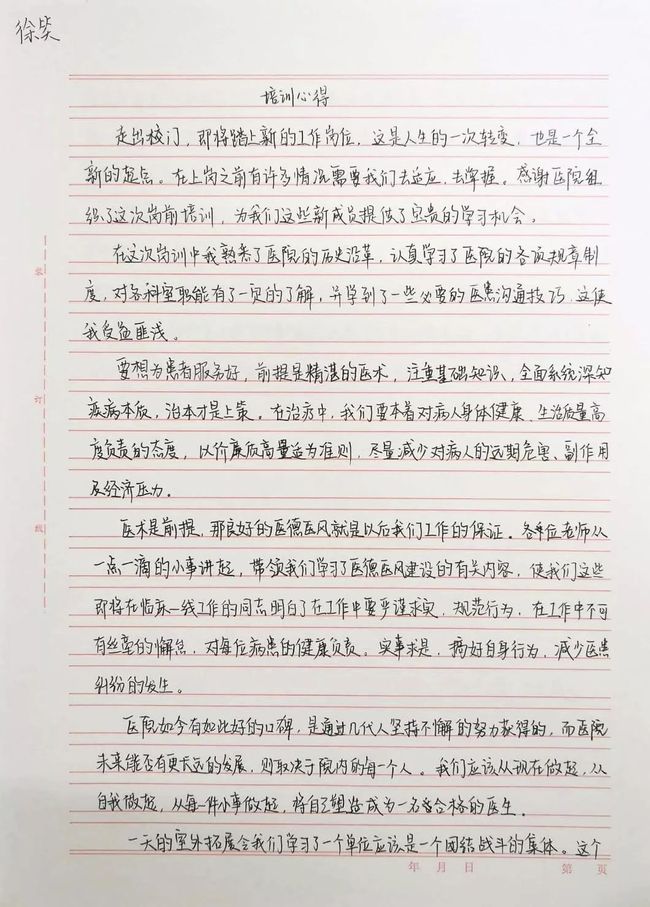 徐笑
培训心得
走出校门，即将踏上新的工作岗位，这是人生的一次转变，也是一个全
新的起点。在上岗之前有许多情况需要我们去适应，去掌握。感谢医院组
织了这次岗前培训，为我们这些新成员提供了宝贵的学习机会。
在这次岗训中我熟悉了医院的历史沿革，认真学习了医院的各项规章制
度，对各科室职能有了一定的了解，并学到了一些必要的医患沟通技巧，这使
我受益匪浅。
要想为患者服务好，前提是精湛的医术，注重基础知识，全面系统深知
疾病本质，治本才是上策。在治疗中，我们要本着对病人身体健康、生活质量高
度负责的态度，以价廉质高量适为准则，尽量减少对病人的远期危害、副作用
及经济压力。
医术是前提，那良好的医德医风就是以后我们工作的保证。各单位老师从
一点一滴的小事讲起，带领我们学习了医德医风建设的有关内容，使我们这些
即将在临床一线工作的同志明白了在工作中要严谨求实，规范行为，在工作中不可
有丝毫的懈怠，对每位病患的健康负责。实事求是，搞好自身行为，减少医患
纠纷的发生。
医院如今有如此好的口碑，是通过几代人坚持不懈的努力获得的，而医院
未来能否有更长远的发展，则取决于院内的每一个人。我们应该从现在做起，从
自我做起，从每一件小事做起，将自己塑造成为一名合格的医生。
一天的室外拓展令我们学习了一个单位应该是一个团结战斗的集体。这个
装
订
线
年 月 日
第 页